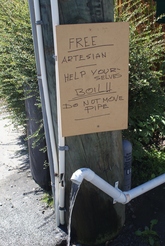 FREE
ARTESIAN
HELP YOUR-
SELVES
BOIL!
DO NOT MOVE
PIPE